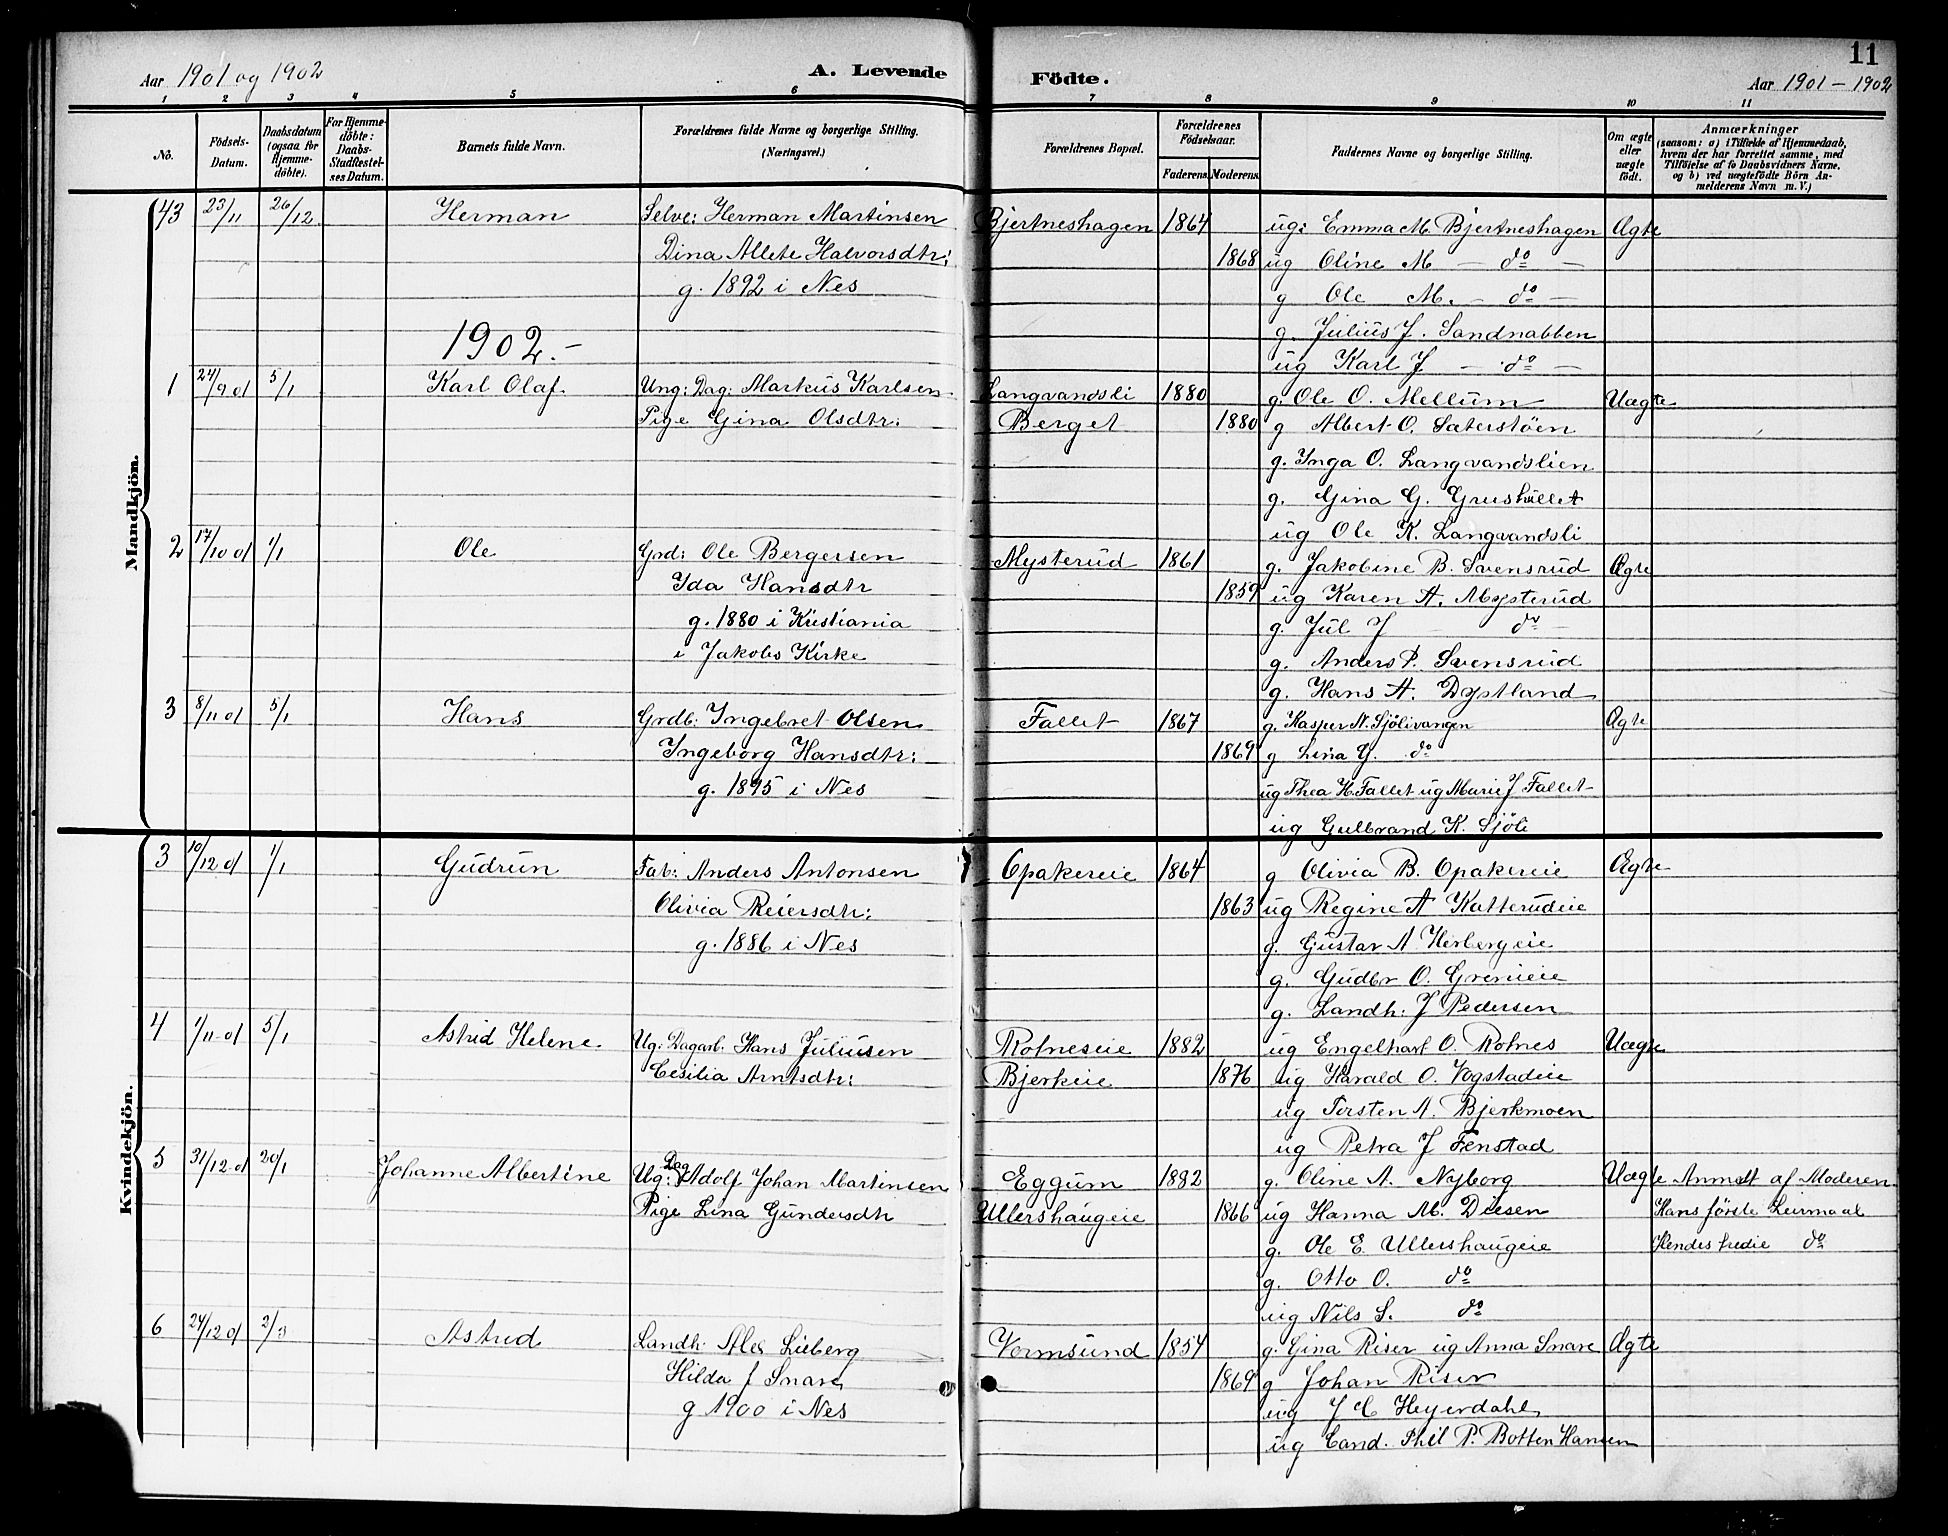 Aar 1901 og 1902
A. Levende Födte.
11
Aar 1901 – 1902
1 2 3 4 5 6 7 8 9 10 11
No.
Födsels-Datum.
Daabsdatum (ogsaa for Hjemme-döbte).
For Hjemme-döbte: Daabs-Stadfæstel-ses Datum.
Barnets fulde Navn.
Forældrenes fulde Navne og borgerlige Stilling. (Næringsvei.)
Forældrenes Bopæl.
Forældrenes Födselsaar.
Faderens. Moderens.
Faddernes Navne og borgerlige Stilling.
Om ægte eller uægte födt.
Anmærkninger
(saasom: a) i Tilfælde af Hjemmedaab,
hvem der har forrettet samme, med
Tilföielse af to Daabsvidners Navne,
og b) ved uægtefödte Börn An-
melderens Navn m. V.)
Mandkjön.
43 23/11 26/12 Herman Selve: Herman Martinsen Bjertneshagen 1864 ug: Emma M. Bjertneshagen Ægte
Dina Allete Halvorsdtr: 1868 ug Oline M – do –
g. 1892 i Nes g Ole M. – do –
g. Julius J. Sandnabben
1902.–
ug Karl J – do –
1 24/9 01 5/1 Karl Olaf Ung: Dag: Markus Karlsen Langvandsli 1880 g. Ole O. Mellum Uægte
Pige Gina Olsdtr: Berget 1880 g Albert O. Sæterstöen
g. Inga O. Langvandslien
g. Gina G. Grushullet
ug Ole K. Langvandsli
2 17/10 01 1/1 Ole Grd: Ole Bergersen Mysterud 1861 g. Jakobine B. Svensrud Ægte
Ida Hansdtr 1859 ug Karen A. Mysterud
g. 1880 i Kristiania g. Jul J – do –
i Jakobs Kirke g. Anders P. Svensrud
g. Hans A. Dystland
3 8/11 01 5/1 Hans Grdb: Ingebret Olsen Fallet 1867 g. Kasper N. Sjölivangen Ægte
Ingeborg Hansdtr: 1869 g Lina G. do
g. 1895 i Nes ug Thea H. Fallet ug Marie J Fallet
ug Gulbrand K. Sjöli
Kvindekjön.
3 10/12 01 1/1 Gudrun Fab: Anders Antonsen Opakereie 1864 g Olivia B. Opakereie Ægte
Olivia Reiersdtr: 1863 ug Regine A Katterudeie
g. 1886 i Nes g. Gustav A Herbergeie
g. Gudbr O. Grenieie
g. Landh: J Pedersen
4 1/11 01 5/1 Astrid Helene Ug: Dagarb. Hans Juliusen Rotneseie 1882 ug Engelhart O. Rotnes Uægte
Cesilia Arntsdtr: Bjerkeie 1876 ug Harald O. Vogstadeie
ug Torsten A. Bjerkmoen
ug Petra J Fenstad
5 31/12 01 20/1 Johanne Albertine Ug: Dag Adolf Johan Martinsen Eggum 1882 g. Oline A. Nyborg Uægte Anmelt af Moderen
Pige Lina Gundersdtr Ullershaugeie 1866 ug Hanna M. Diesen Hans förste Leirmaal
g. Ole E. Ullershaugeie Hendes tredie do
g. Otto O. do
ug Nils S. do
6 24/12 01 2/3 Astrid Landh Alex Lieberg Vormsund 1854 g. Gina Riser ug Anna Snare Ægte
Hilda f Snare 1869 g Johan Riser
g 1900 i Nes ug J C Heyerdahl
ug Cand. Phil P. Botten Hansen